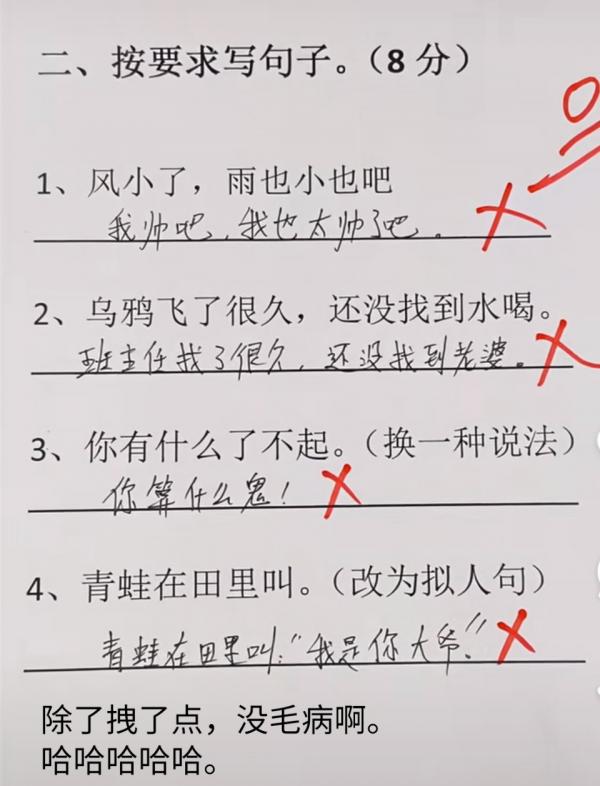 二、按要求写句子。（8分）
0
1、风小了，雨也小也吧
我帅吧，我也太帅了吧。
2、乌鸦飞了很久，还没找到水喝。
班主任找了很久，还没找到老婆。
3、你有什么了不起。（换一种说法）
你算什么鬼！
4、青蛙在田里叫。（改为拟人句）
青蛙在田里叫：“我是你大爷。”
除了拽了点，没毛病啊。
哈哈哈哈哈。